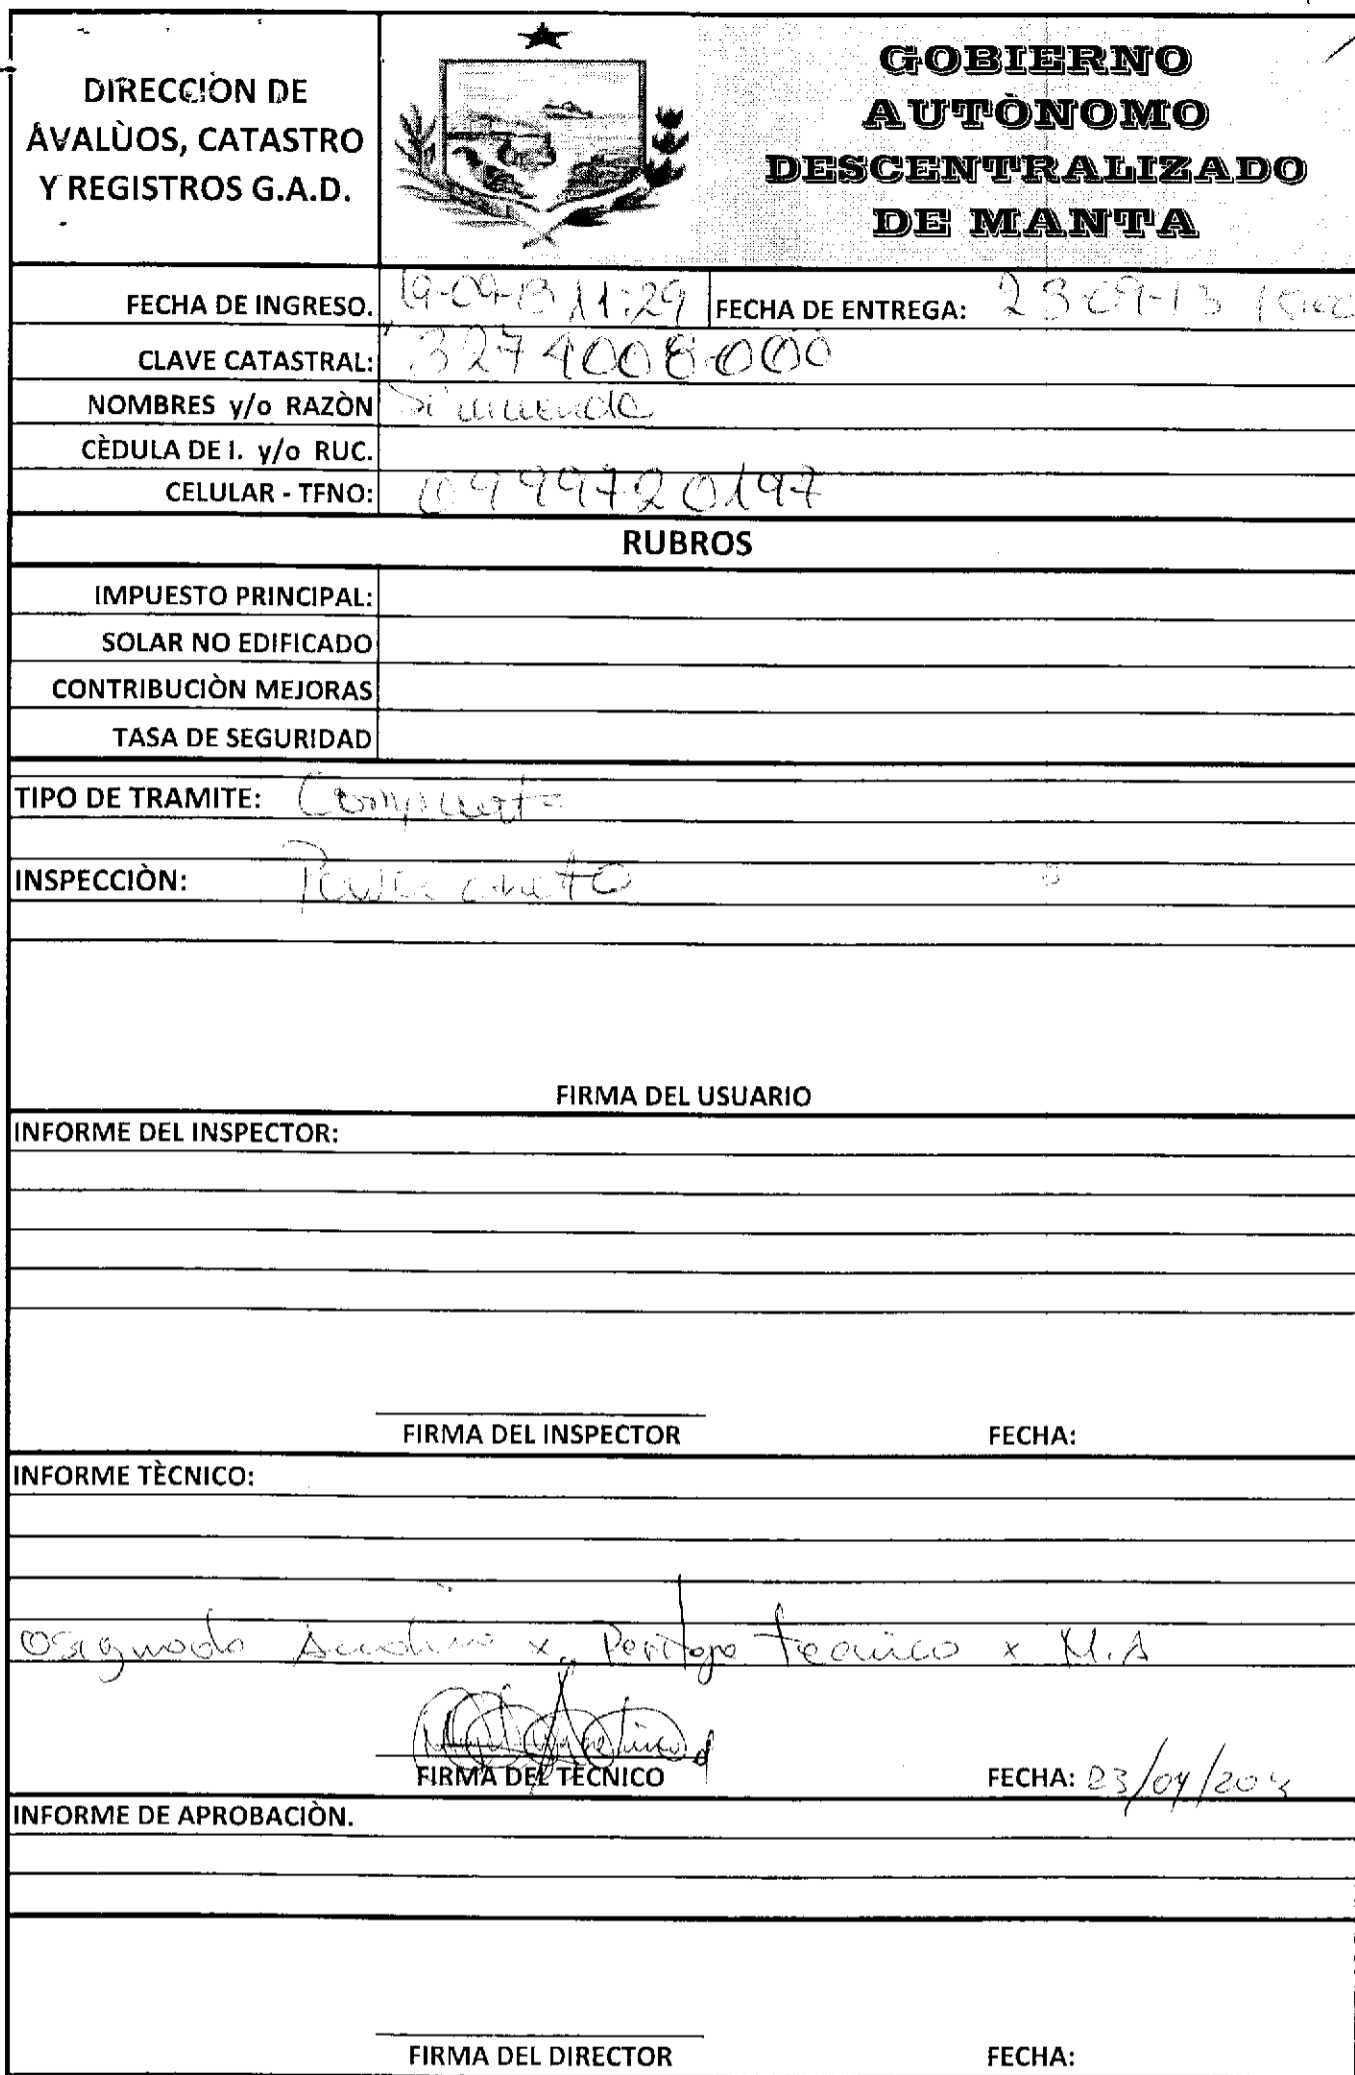 DIRECCIÒN DE
AVALÙOS, CATASTRO
Y REGISTROS G.A.D.
GOBIERNO
AUTÒNOMO
DESCENTRALIZADO
DE MANTA
FECHA DE INGRESO. 19-09-13 11:29 FECHA DE ENTREGA: 23-09-13
CLAVE CATASTRAL: 3274008000
NOMBRES y/o RAZÒN
CÈDULA DE I. y/o RUC.
CELULAR - TFNO: 0999720197
RUBROS
IMPUESTO PRINCIPAL:
SOLAR NO EDIFICADO
CONTRIBUCIÒN MEJORAS
TASA DE SEGURIDAD
TIPO DE TRAMITE:
INSPECCIÒN:
FIRMA DEL USUARIO
INFORME DEL INSPECTOR:
FIRMA DEL INSPECTOR FECHA:
INFORME TÈCNICO:
x Peritaje Tecnico x M.A
FIRMA DEL TÈCNICO FECHA:
INFORME DE APROBACIÒN.
FIRMA DEL DIRECTOR FECHA: